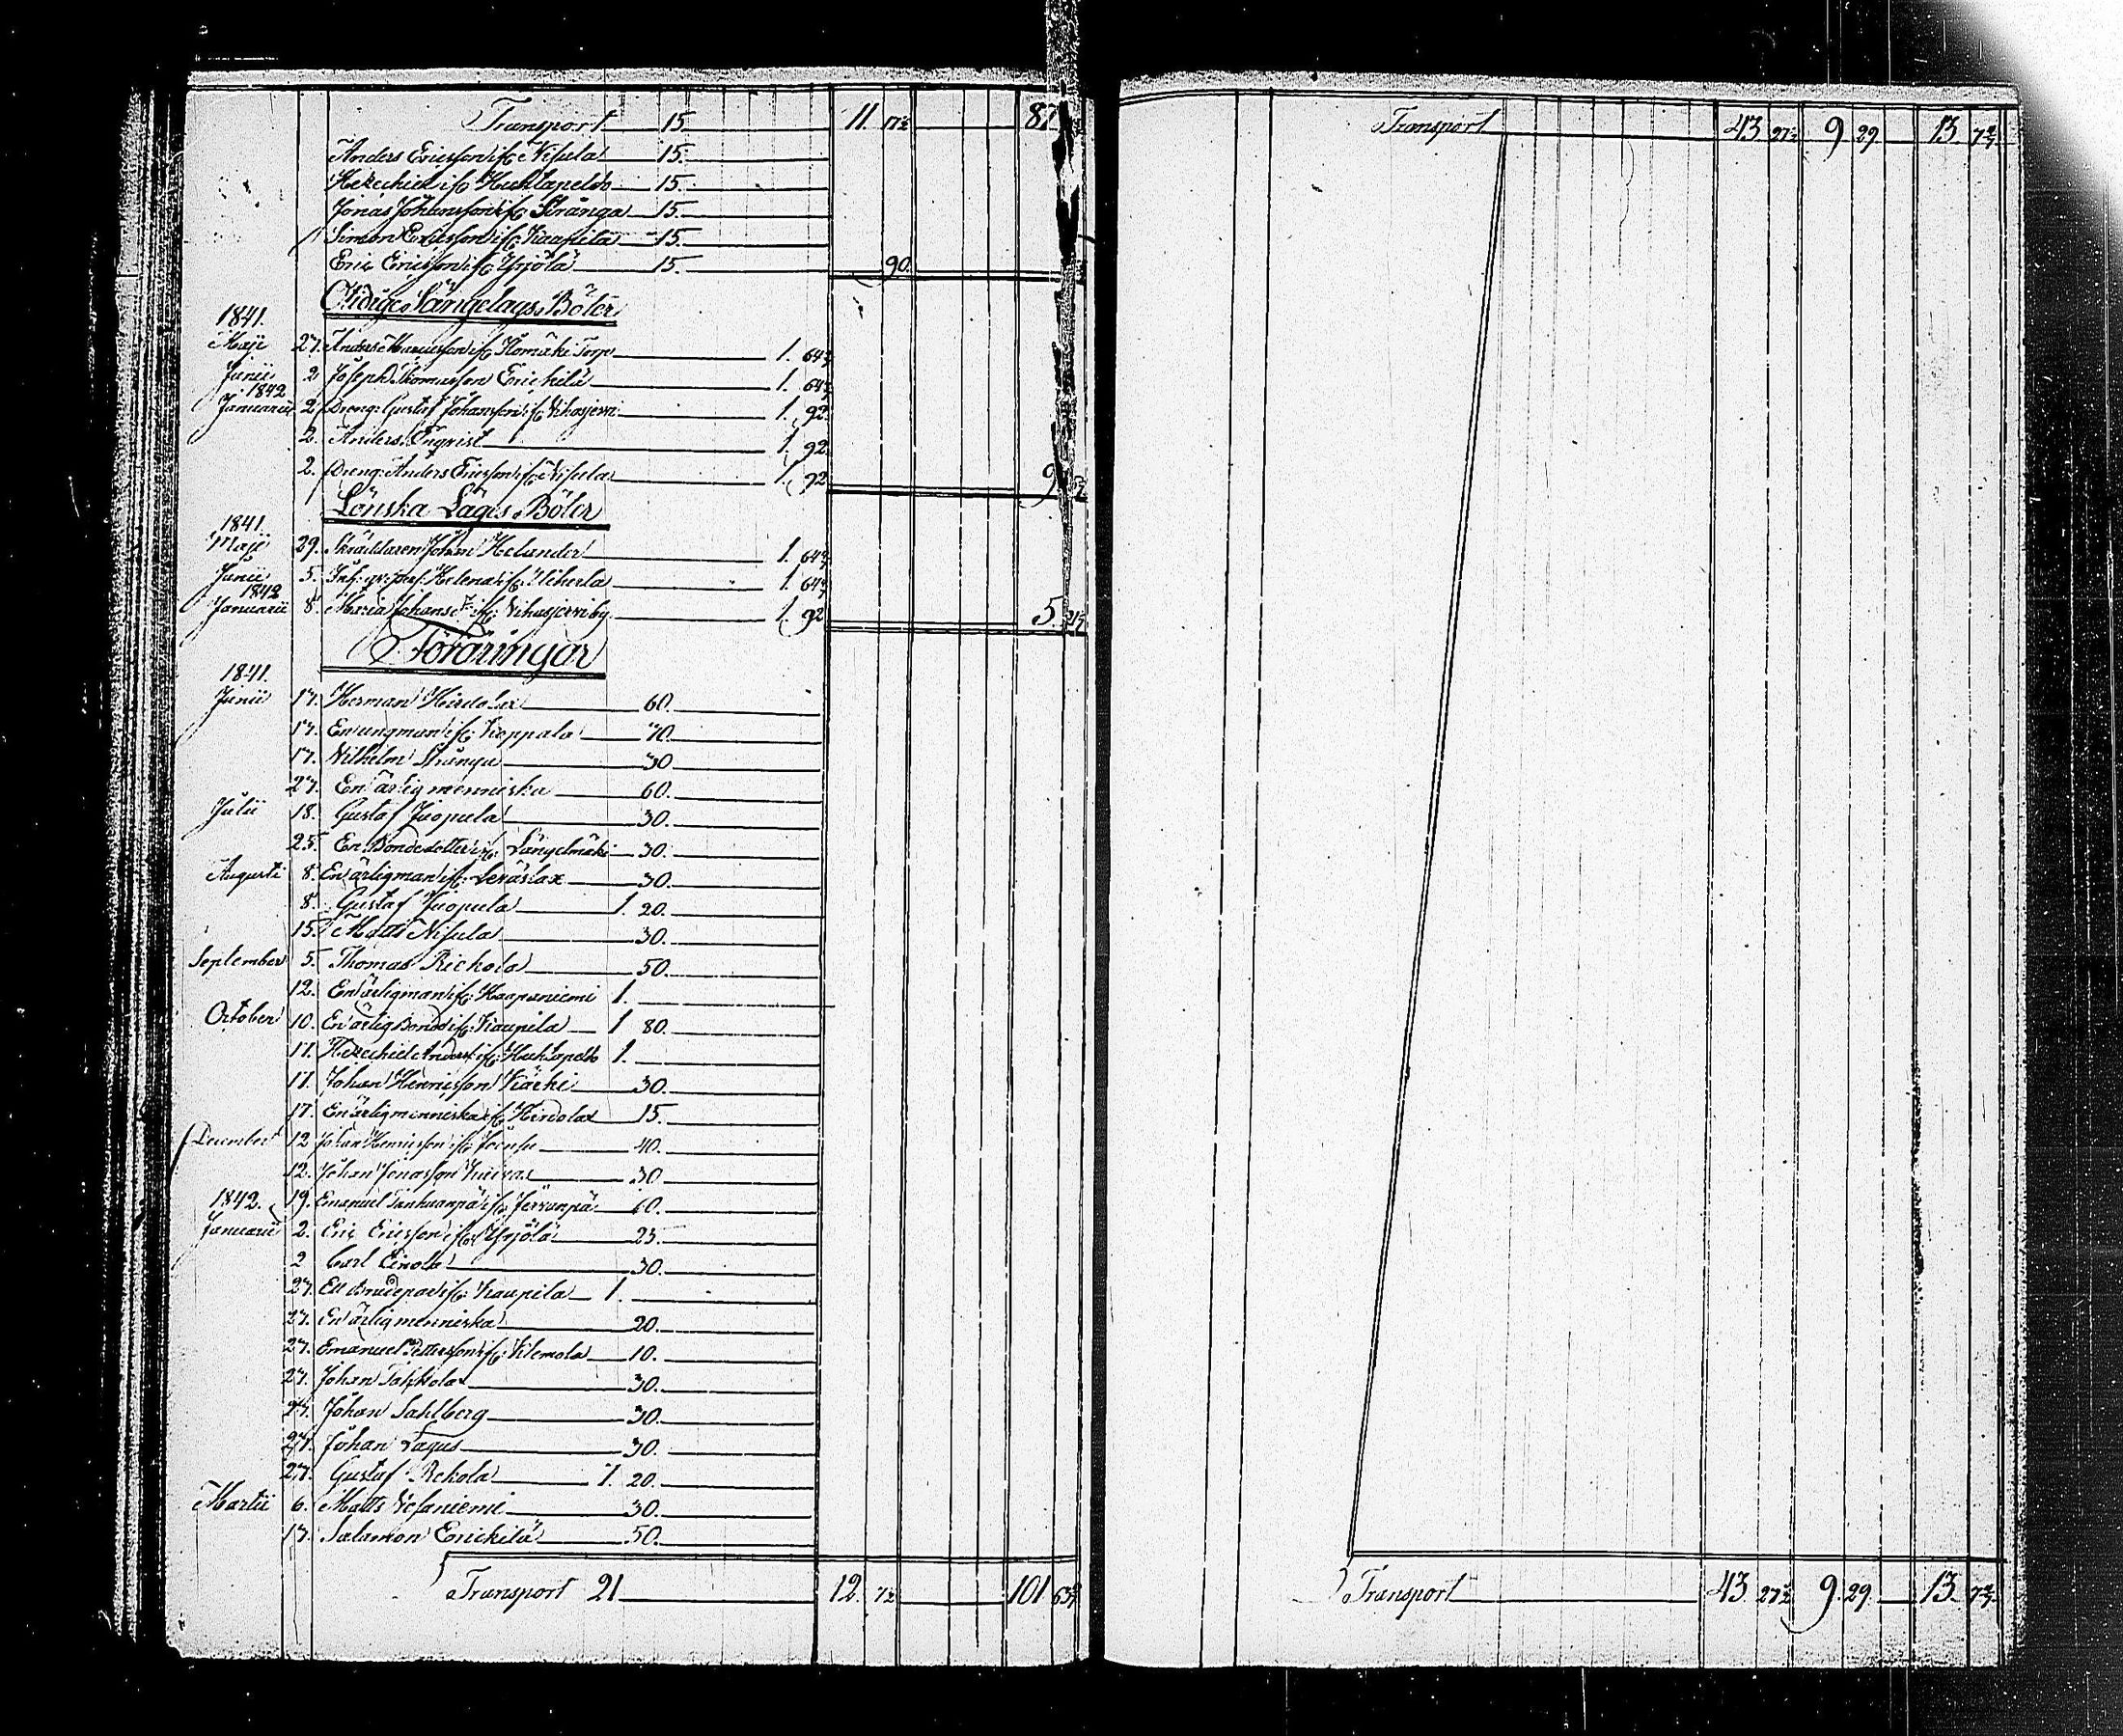 Transport 15. 11. 17½ 87
Anders Ericsson if: Nisula 15.
Hezechiel if: Huhtapelto 15.
Jonas Johansson if: Stränga 15.
Simon Ericsson if: Kaupila 15.
Eric Ericsson if: Yrjölä 15. 90.
Otidige Sängelags Böter
1841.
Maji 27. Anders if: Torp 1. 64 2/7
Junii 2 Joseph Thomasson Erickilä 1. 64 2/7
1842
Januarii 2 Dreng: Gustaf Johansson if: Vihasjervi 1. 92.
2. Anders Enqvist 1. 92.
2. Dreng: Anders Ericsson if: Nisula 1. 92 9
Lönska Lägs Böter
1841.
Maji 29. Skräddaren Johan Helander 1. 64 2/7
Junii 5. Helena if: 1. 64 2/7
1842
Januarii 8. Maria Johansd:r if: Vihasjervi by 1. 92 5.
Föräringar
1841.
Junii 17. Herman Hirdolax 60.
17. En ungman if: Koppala 70.
17. Wilhelm Stränga 30
27. En ärlig menniska 60.
Julii 18. Gustaf Juopula 30.
25. En Bondedotter if: Längelmäki 30.
Augusti 8. En ärlig man if: Leväslax 30.
8. Gustaf Juopula 1. 20.
15. Matts Nisula 30.
September 5. Thomas Richola 50.
12. En ärlig man if: Haapaniemi 1.
October 10. En ärlig Bonde if: Kaupila 1 80.
17. Hezechiel Anders if: Huhtapelto 1.
17. Johan Henricsson Kärki 30.
17. En ärlig menniska if: Hirdolax 15.
December 12 Johan Henricsson if: 40.
12. Johan Jonasson 30
1842. 19. Emanuel if: Jervenpä 60.
Januarii 2. Eric Ericsson if: Yrjölä 25.
2 Carl Einola 30.
27. Ett Brudepar if: Kaupila 1.
27. En ärlig menniska 20.
27. Emanuel Pettersson if: Vilemola 10.
27. Johan 30.
27. Johan Sahlberg 30.
27. Johan Lagus 30.
27. Gustaf Rekola 1. 20.
Martii 6. Matts Vesaniemi 30.
17. Salamon Erickilä 50.
Transport 21 12. 7½ 101 63 2/7
Transport 43 27½ 9 29. 13. 7 2/7
Transport 43 27½ 9. 29. 13. 7 2/7